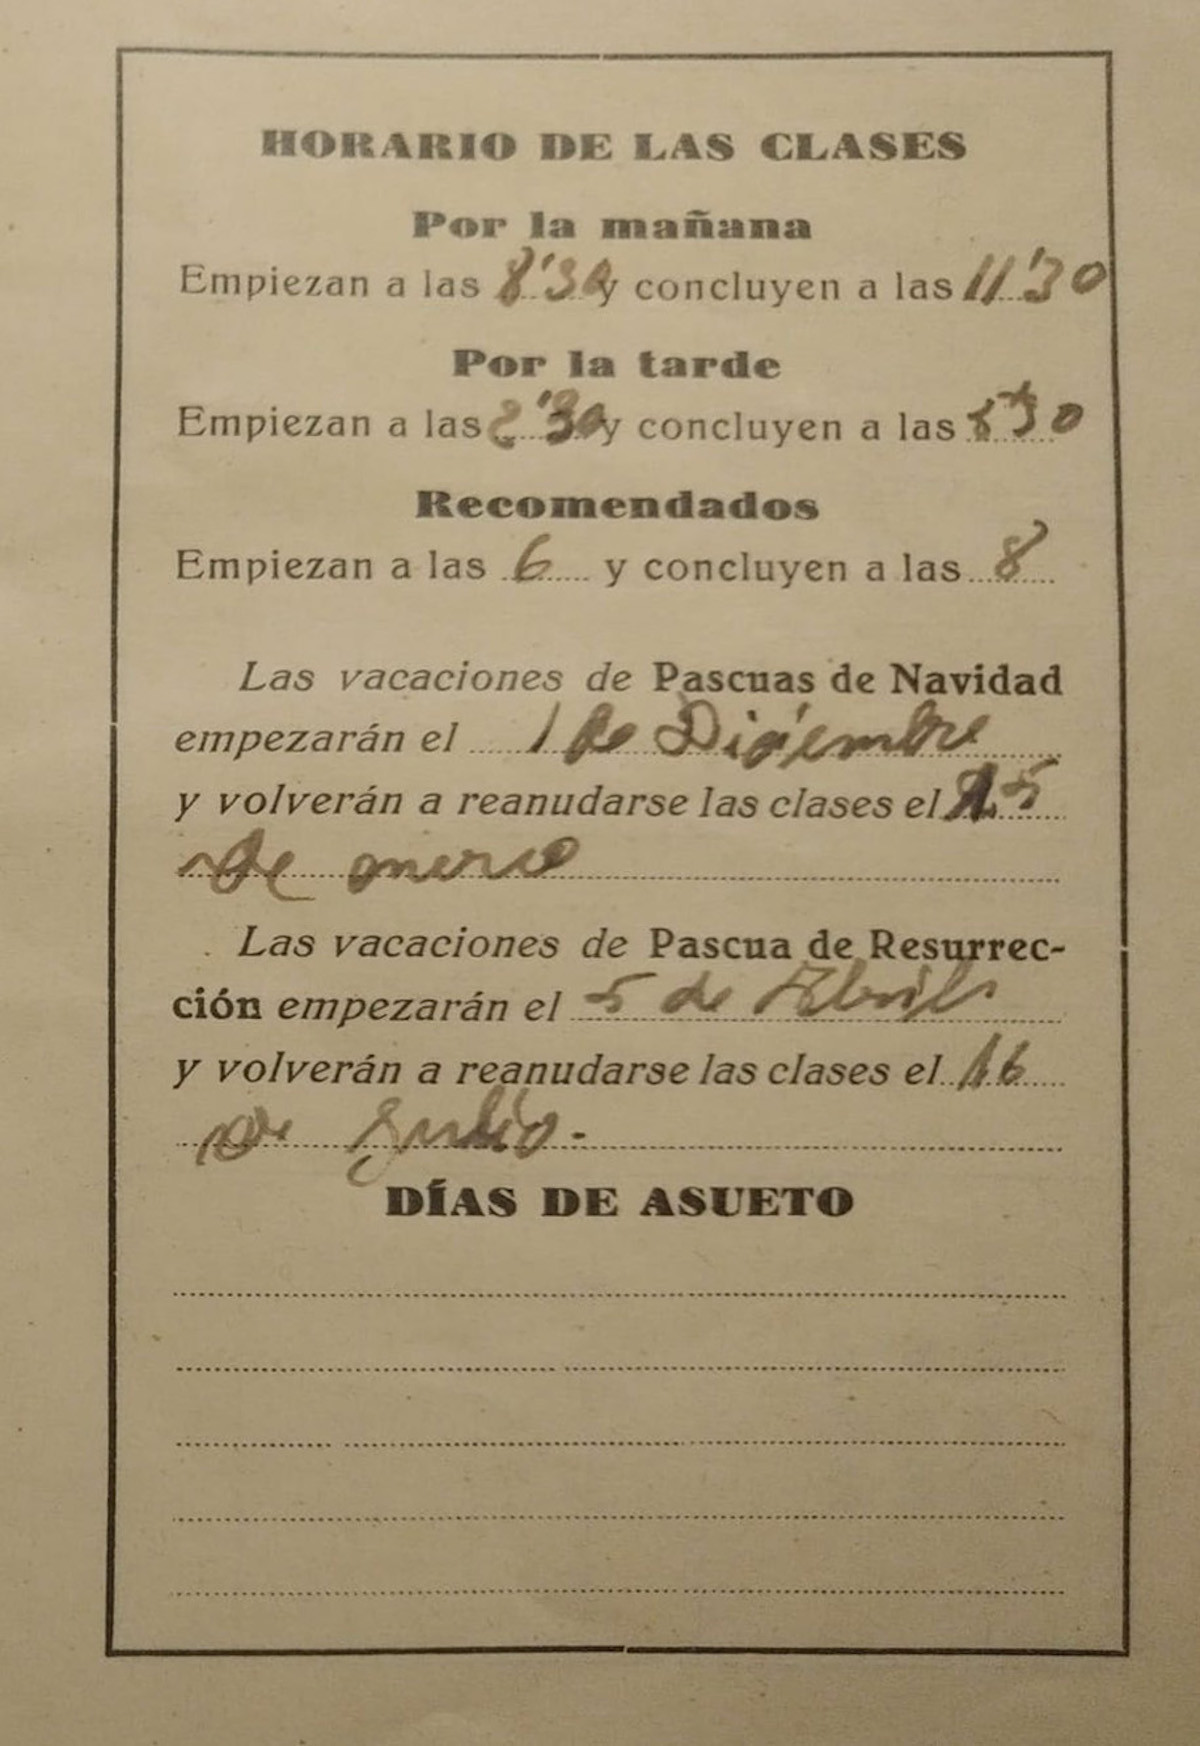 HORARIO DE LAS CLASES
Por la mañana
Empiezan a las 8'30 y concluyen a las 11'30
Por la tarde
Empiezan a las 2'30 y concluyen a las 5'30
Recomendados
Empiezan a las 6 y concluyen a las 8
Las vacaciones de Pascuas de Navidad
empezarán el 1 de Diciembre
y volverán a reanudarse las clases el
de enero
. Las vacaciones de Pascua de Resurrec-
ción empezarán el 5 de Abril
y volverán a reanudarse las clases el 16
de Julio.-
DÍAS DE ASUETO